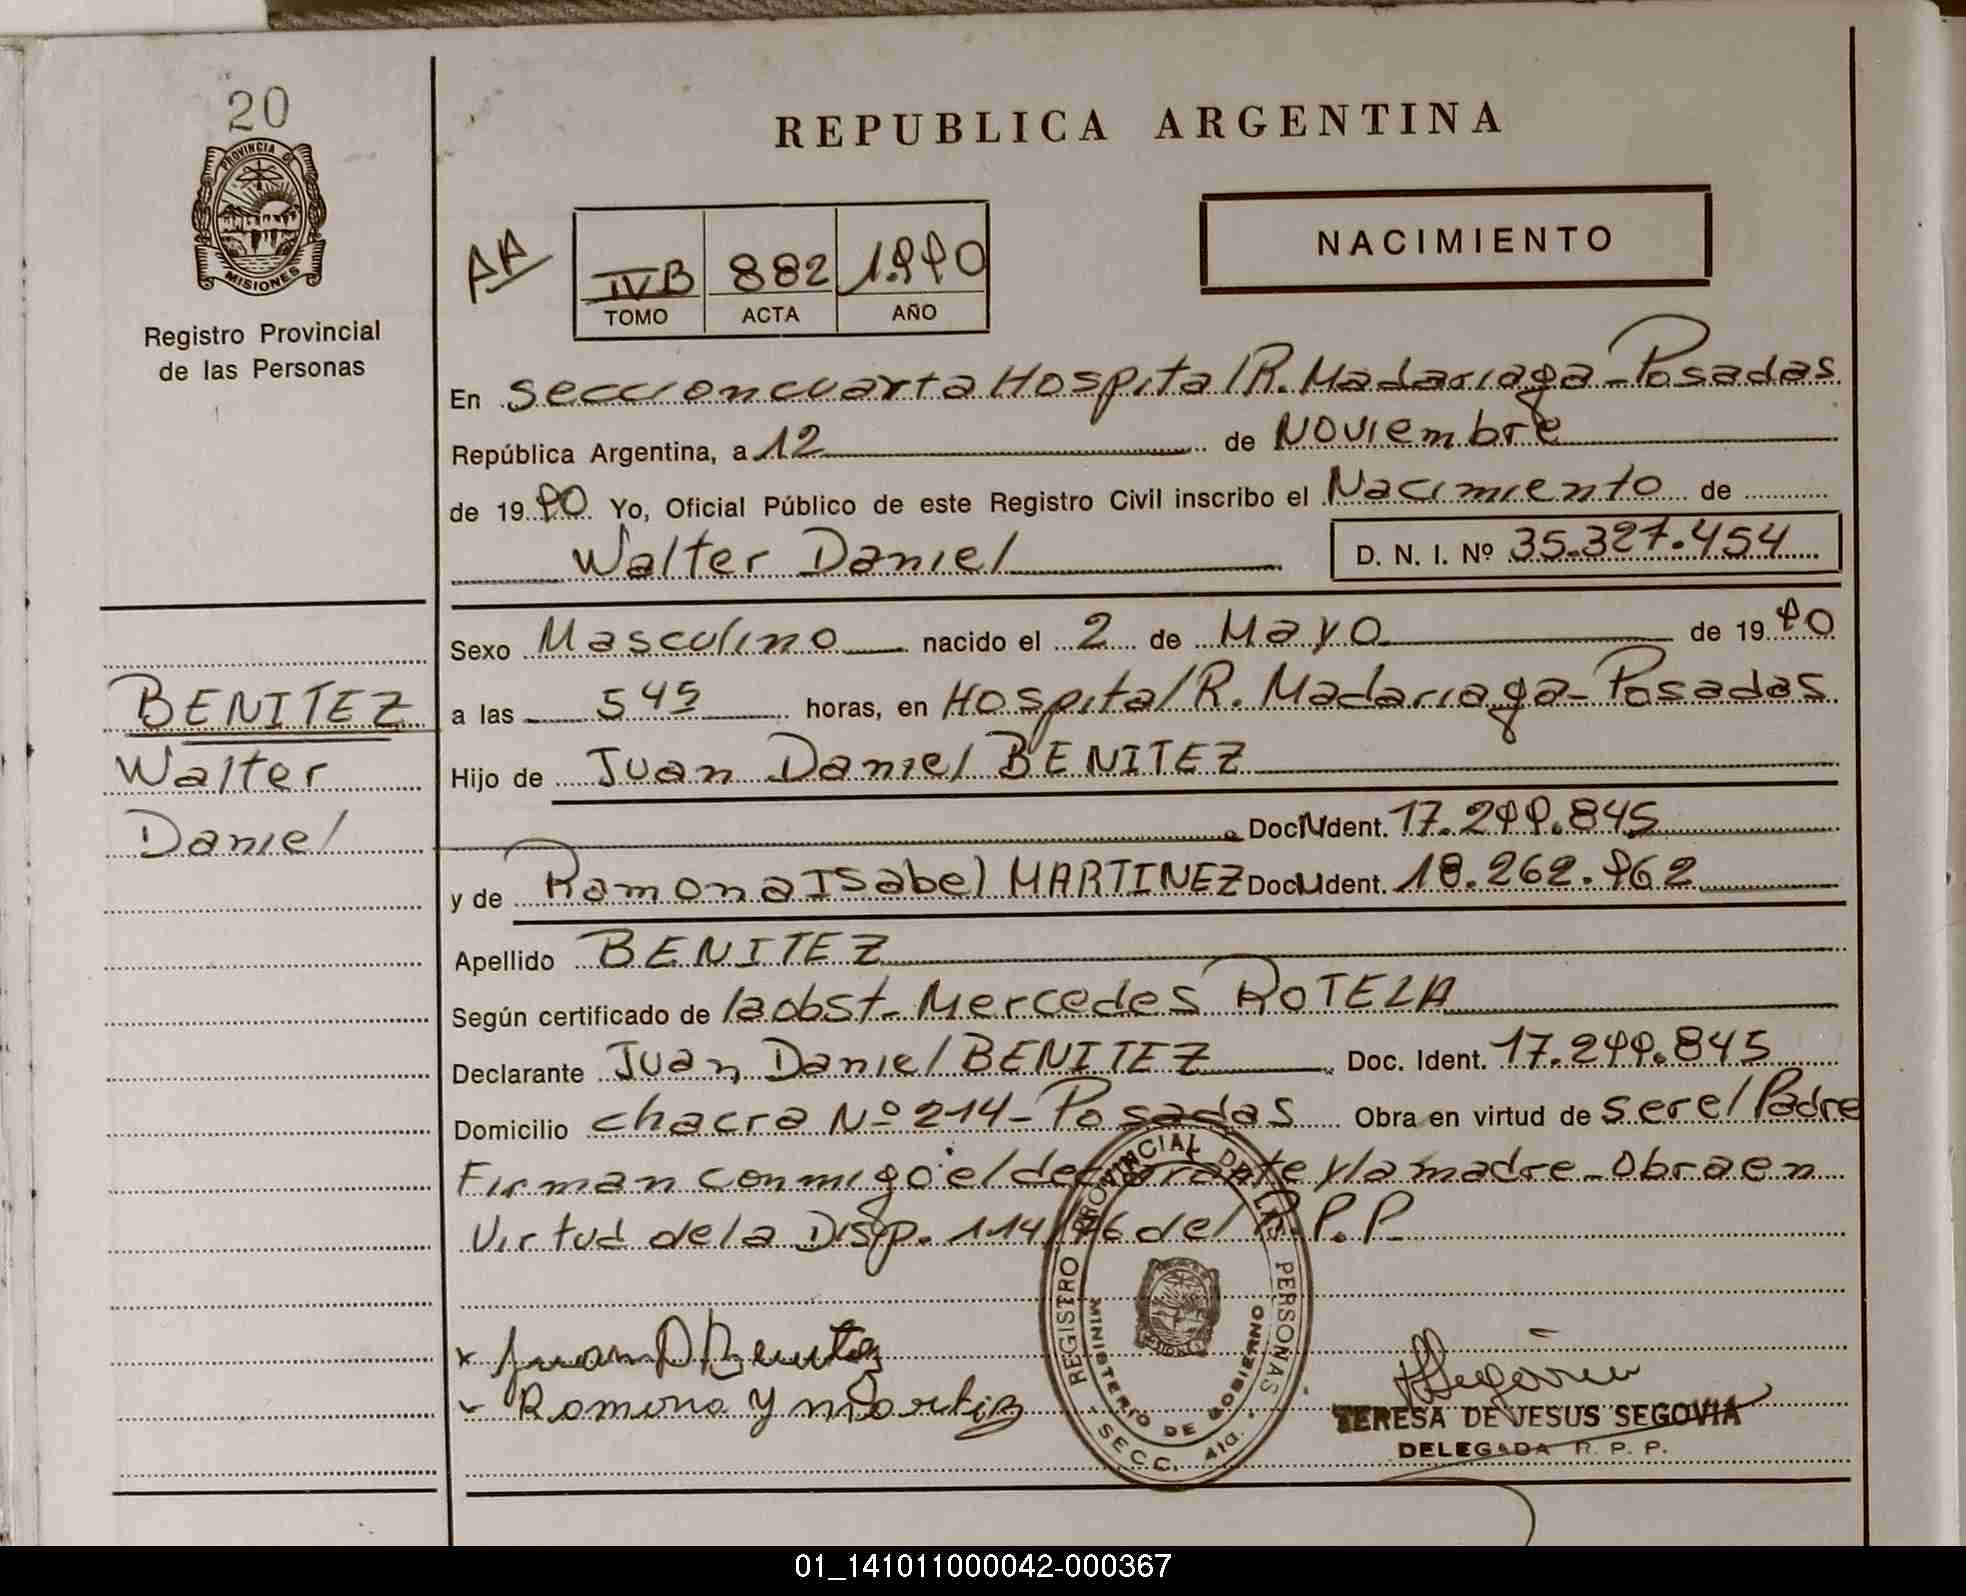 20
PROVINCIA DE
MISIONES
Registro Provincial
de las Personas
REPUBLICA ARGENTINA
AA
IVB 882 1.990
TOMO ACTA AÑO
NACIMIENTO
En Seccion cuarta Hospital R. Madariaga - Posadas
República Argentina, a 12 de Noviembre
de 1990 Yo, Oficial Público de este Registro Civil inscribo el Nacimiento de
Walter Daniel D. N. I. Nº 35.327.454
Sexo Masculino nacido el 2 de Mayo de 1990
BENITEZ
Walter
Daniel
a las 5 45 horas, en Hospital R. Madariaga - Posadas
Hijo de Juan Daniel BENITEZ
Doc. Ident. 17.299.845
y de Ramona Isabel MARTINEZ Doc. Ident. 18.262.962
Apellido BENITEZ
Según certificado de la obst. Mercedes ROTELA
Declarante Juan Daniel BENITEZ Doc. Ident. 17.299.845
Domicilio chacra Nº 214 - Posadas Obra en virtud de ser el Padre
Firman conmigo el declarante y la madre - Obra en
Virtud de la Disp. 114/76 del R.P.P.
x Juan D Benitez
Ramona Y Martinez
REGISTRO PROVINCIAL DE LAS PERSONAS
MINISTERIO DE GOBIERNO
SECC. 4ta.
TERESA DE JESUS SEGOVIA
DELEGADA R. P. P.
01_141011000042-000367